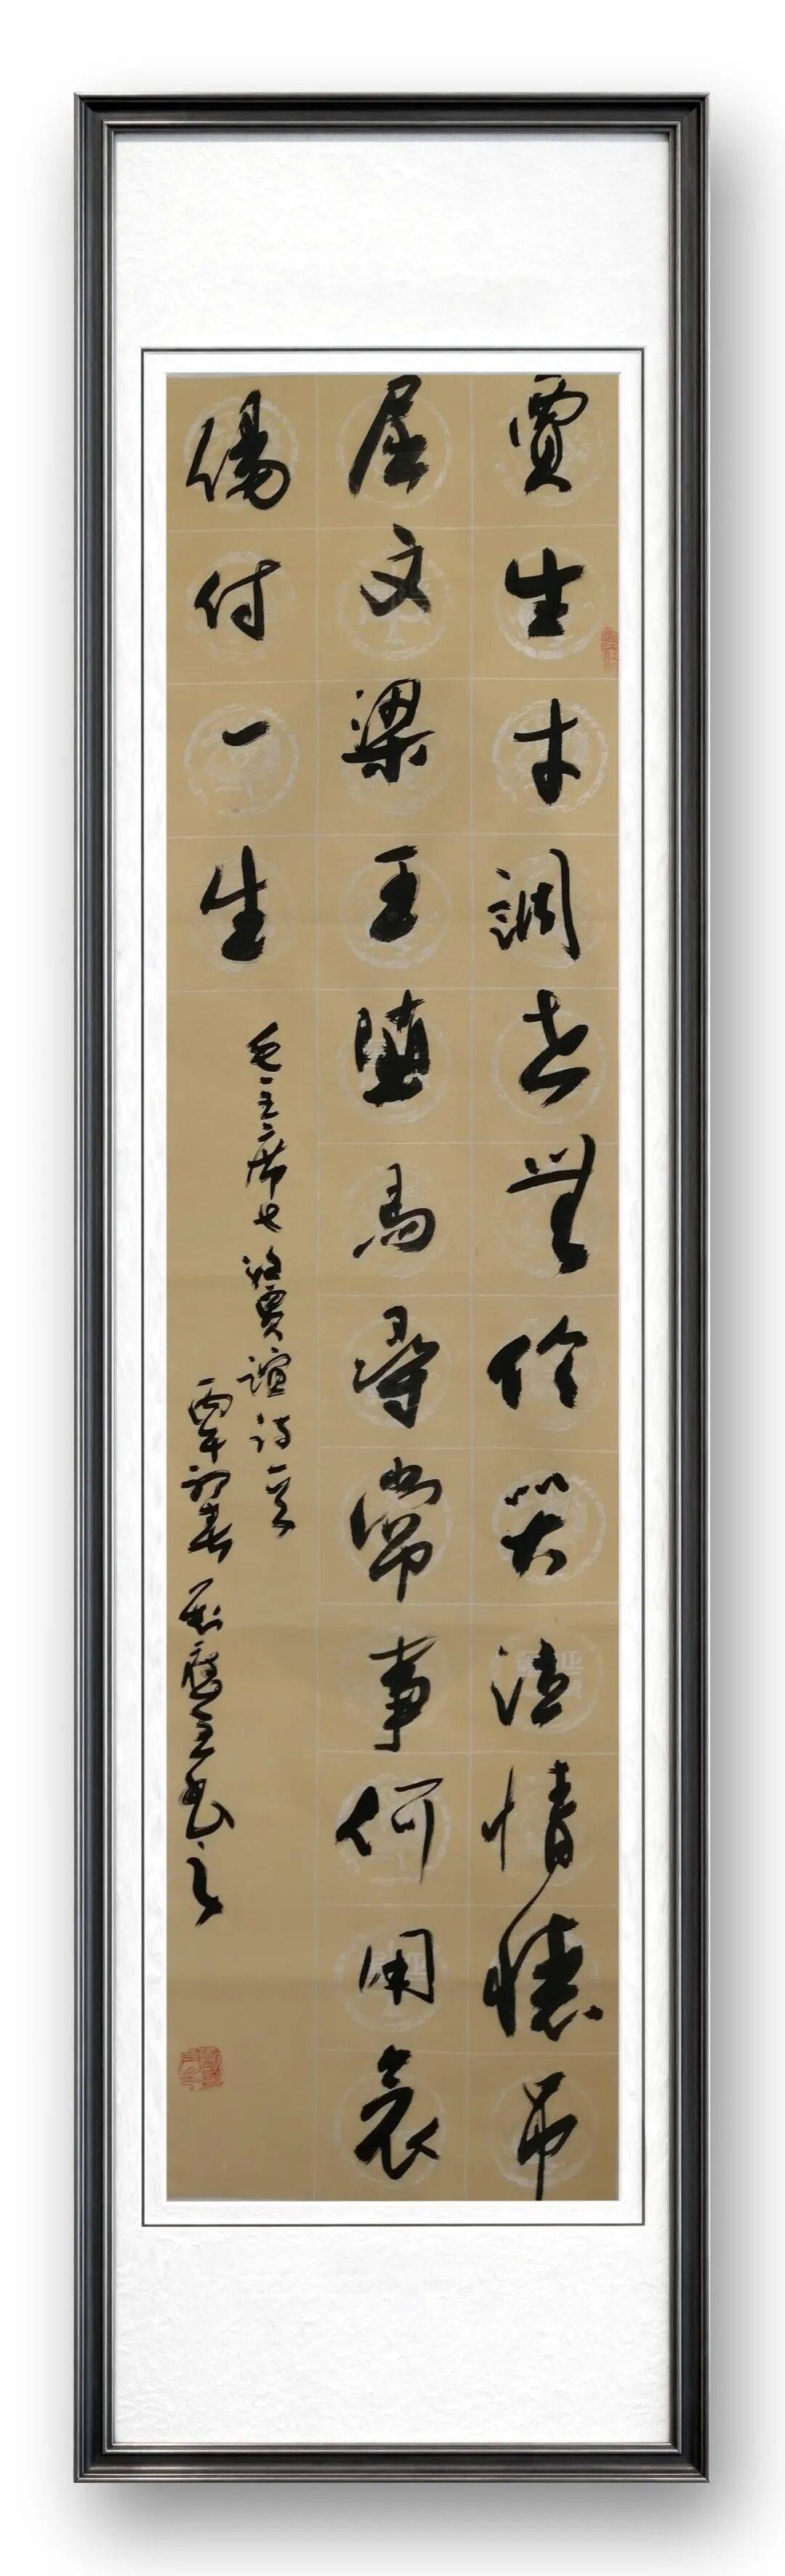 賈生才調世無倫哭泣情懷吊
屈文梁王墮馬尋常事何用哀
傷付一生
毛主席七絕賈誼詩一首
丙午初春 書之